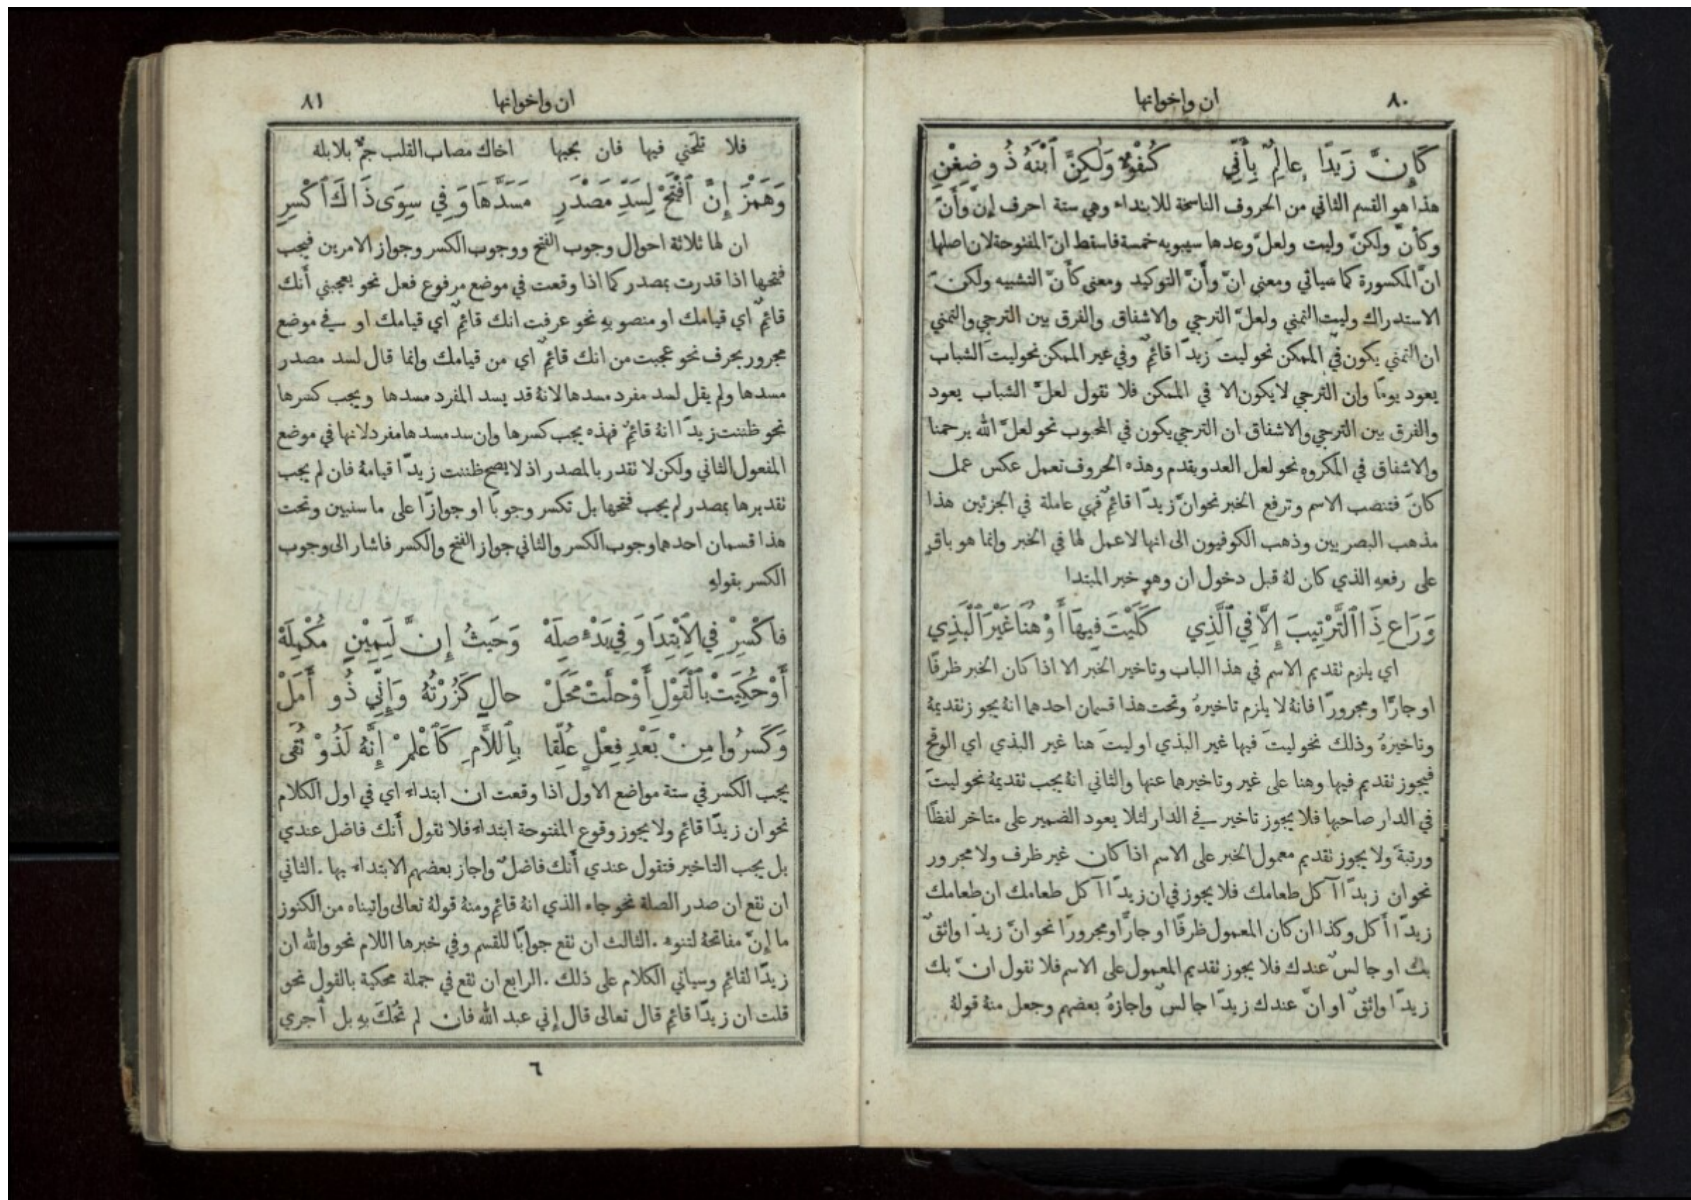 ٨٠
ان واخواتها
كَإِنَّ زَيْدًا عالِمٌ بِأَنِّي كُفْوٌ وَلٰكِنَّ ٱبْنَهُ ذُو ضِغْنِ
هذا هو القسم الثاني من الحروف الناسخة للابتداء وهي ستة احرف إنّ وأَنّ
وكأنّ ولكنّ وليت ولعلّ وعدها سيبويه خمسة فاسقط انّ المفتوحة لان اصلها
انّ المكسورة كما سياتي ومعنى انّ وأَنّ التوكيد ومعنى كأنّ التشبيه ولكنّ
الاستدراك وليت التمني ولعلّ الترجي والاشفاق والفرق بين الترجي والتمني
ان التمني يكون في الممكن نحو ليتَ زيدًا قائمٌ وفي غير الممكن نحو ليتَ الشباب
يعود يومًا وان الترجي لا يكون الا في الممكن فلا تقول لعلّ الشباب يعود
والفرق بين الترجي والاشفاق ان الترجي يكون في المحبوب نحو لعلّ الله يرحمنا
والاشفاق في المكروه نحو لعل العدو يقدم وهذه الحروف تعمل عكس عمل
كانَ فتنصب الاسم وترفع الخبر نحو انّ زيدًا قائمٌ فهي عاملة في الجزئين هذا
مذهب البصريين وذهب الكوفيون الى انها لا عمل لها في الخبر وانما هو باقٍ
على رفعهِ الذي كان لهُ قبل دخول ان وهو خبر المبتدا
وَرَاعِ ذَا ٱلتَّرْتِيبَ إِلاَّ فِي ٱلَّذِي كَلَيْتَ فِيهَا أَوْ هُنَا غَيْرَ ٱلْبَذِي
اي يلزم تقديم الاسم في هذا الباب وتاخير الخبر الا اذا كان الخبر ظرفًا
او جارًّا ومجرورًا فانهُ لا يلزم تاخيرهُ وتحت هذا قسمان احدهما انهُ يجوز تقديمهُ
وتاخيرهُ وذلك نحو ليتَ فيها غير البذي او ليتَ هنا غير البذي اي الوقح
فيجوز تقديم فيها وهنا على غير وتاخيرها عنها والثاني انهُ يجب تقديمهُ نحو ليتَ
في الدار صاحبها فلا يجوز تاخير في الدار لئلا يعود الضمير على متاخر لفظًا
ورتبةً ولا يجوز تقديم معمول الخبر على الاسم اذا كان غير ظرف ولا مجرور
نحو ان زيدًا آكل طعامك فلا يجوز في ان زيدًا آكل طعامك ان طعامك
زيدًا آكل وكذا ان كان المعمول ظرفًا او جارًّا ومجرورًا نحو انّ زيدًا واثقٌ
بك او جالسٌ عندك فلا يجوز تقديم المعمول على الاسم فلا تقول انّ بك
زيدًا واثقٌ او انّ عندك زيدًا جالسٌ واجازهُ بعضهم وجعل منهُ قولهُ
ان واخواتها
٨١
فلا تلحني فيها فان بحبها اخاك مصاب القلب جمٌّ بلابله
وَهَمْزَ إِنَّ ٱفْتَحْ لِسَدِّ مَصْدَرِ مَسَدَّهَا وَفِي سِوَى ذَاكَ ٱكْسِرِ
ان لها ثلاثة احوال وجوب الفتح ووجوب الكسر وجواز الامرين فيجب
فتحها اذا قدرت بمصدر كما اذا وقعت في موضع مرفوع فعل نحو يعجبني أَنك
قائمٌ اي قيامك او منصوبهِ نحو عرفت انك قائمٌ اي قيامك او في موضع
مجرور بحرف نحو عجبت من انك قائمٌ اي من قيامك وانما قال لسد مصدر
مسدها ولم يقل لسد مفرد مسدها لانهُ قد يسد المفرد مسدها ويجب كسرها
نحو ظننت زيدًا انهُ قائمٌ فهذه يجب كسرها وان سد مسدها مفرد لانها في موضع
المفعول الثاني ولكن لا تقدر بالمصدر اذ لا يصح ظننت زيدًا قيامهُ فان لم يجب
تقديرها بمصدر لم يجب فتحها بل تكسر وجوبًا او جوازًا على ما سنبين وتحت
هذا قسمان احدهما وجوب الكسر والثاني جواز الفتح والكسر فاشار الى وجوب
الكسر بقولهِ
فَٱكْسِرْ فِي ٱلِٱبْتِدَا وَفِي بَدْءِ صِلَهْ وَحَيْثُ إِنَّ لِيَمِيْنٍ مُكْمِلَهْ
أَوْ حُكِيَتْ بِٱلْقَوْلِ أَوْ حَلَّتْ مَحَلّْ حالٍ كَزُرْتُهُ وَإِنِّي ذُو أَمَلْ
وَكَسَرُوا مِنْ بَعْدِ فِعْلٍ عُلِّقا بِٱللاَّمِ كَٱعْلَمْ إِنَّهُ لَذُوْ تُقَى
يجب الكسر في ستة مواضع الاول اذا وقعت ان ابتداء اي في اول الكلام
نحو ان زيدًا قائمٌ ولا يجوز وقوع المفتوحة ابتداء فلا تقول أَنك فاضل عندي
بل يجب التاخير فتقول عندي أَنك فاضلٌ واجاز بعضهم الابتداء بها . الثاني
ان تقع ان صدر الصلة نحو جاء الذي انهُ قائمٌ ومنهُ قولهُ تعالى واتيناه من الكنوز
ما إِنّ مفاتحهُ لتنوء . الثالث ان تقع جوابًا للقسم وفي خبرها اللام نحو والله ان
زيدًا لقائم وسياتي الكلام على ذلك . الرابع ان تقع في جملة محكية بالقول نحو
قلت ان زيدًا قائمٌ قال تعالى قال إني عبد الله فان لم تُحْكَ بهِ بل أُجري
٦